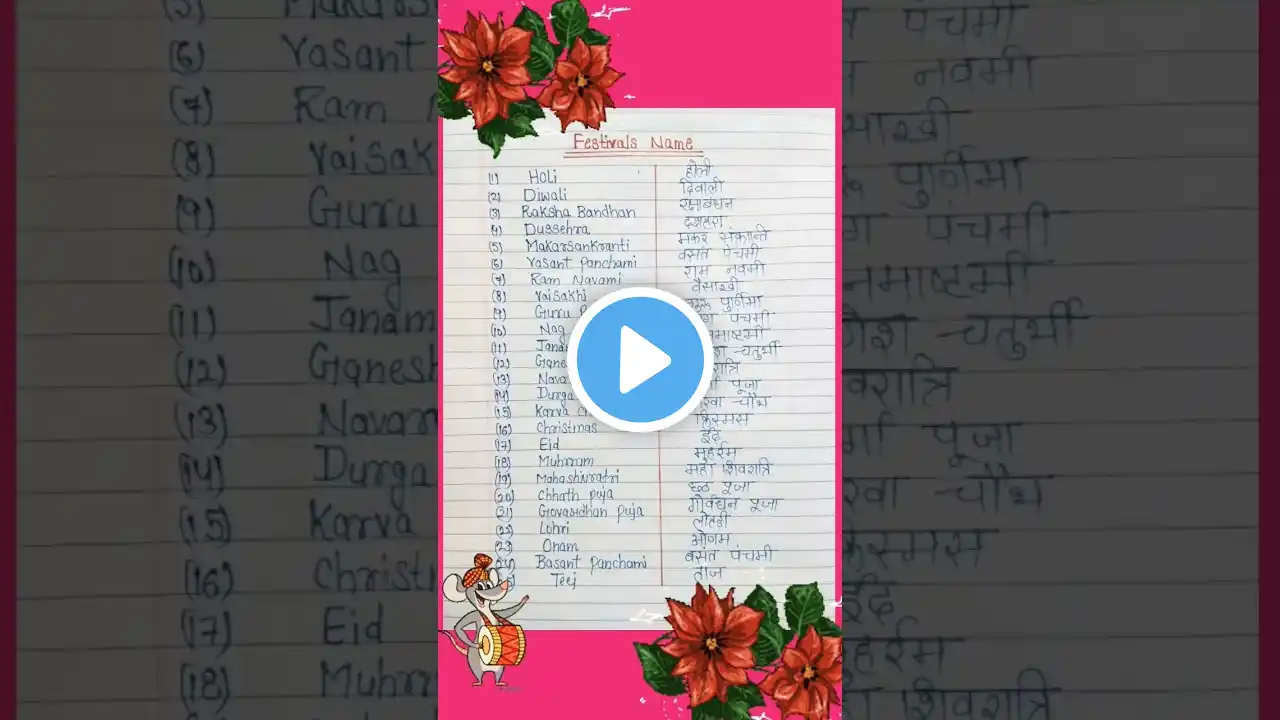 Festivals Name
(1) Holi होली
(2) Diwali दिवाली
(3) Raksha Bandhan रक्षाबंधन
(4) Dussehra दशहरा
(5) Makarsankranti मकर संक्रान्ति
(6) Vasant Panchami वसंत पंचमी
(7) Ram Navami राम नवमी
(8) Vaisakhi वैसाखी
(9) Guru पुर्णिमा
(10) Nag पंचमी
(11)
(12) चतुर्थी
(13)
(14) Durga पूजा
(15) Karva चौथ
(16) Christmas क्रिसमस
(17) Eid ईद
(18) Muhrram मुहर्रम
(19) Mahashivratri महा शिवरात्रि
(20) Chhath puja छठ पूजा
(21) Govardhan puja गोर्वधन पूजा
(22) Lohri लोहड़ी
(23) Onam ओणम
(24) Basant Panchami बसंत पंचमी
Teej तीज